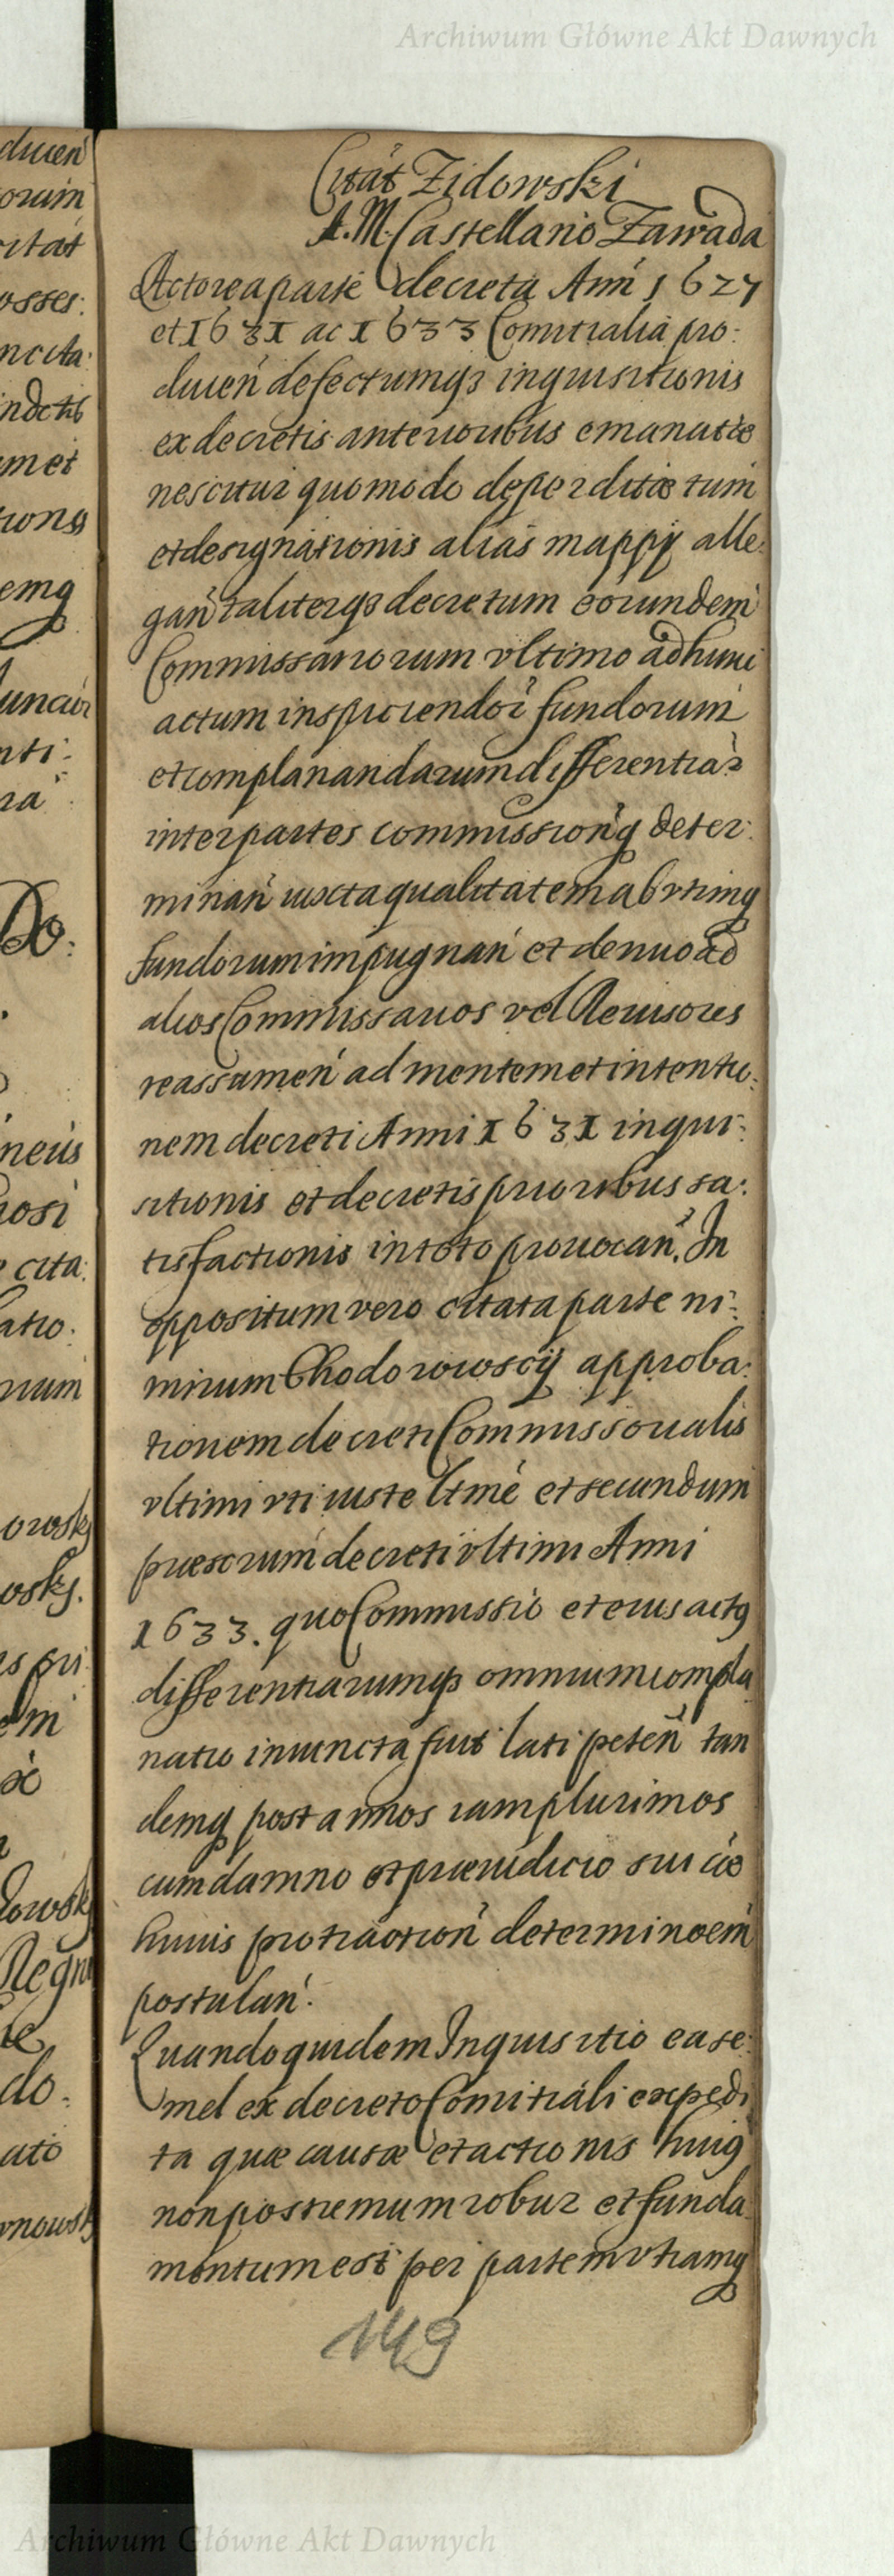 Archiwum Główne Akt Dawnych
Citat Zidowski
A. M. Castellano Zawada
Actorea parte decreta Anni 1627
et 1631 ac 1633 Comitialia pro:
ducen defectumq3 inquisitionis
ex decretis anterioribus emanatæ
nescitur quomodo deperditæ tum
et designationis alias mappÿ alle:
gan taliterq3 decretum eorundem
Commissariorum vltimo ad hunc
actum inspiciendor fundorum
et complanandarum differentiar
inter partes commissionq deter:
minan iuxta qualitatem ab vtrinq
fundorum impugnan et denuo ad
alios Commissarios vel Reuisores
reassumen ad mentem et intentio:
nem decreti Anni 1631 inqui:
sitionis et decretis prioribus sa:
tisfactionis in toto prouocan. In
oppositum vero citata parte ni:
mirum Chodorowscÿ approba:
tionem decreti Commissorialis
vltimi vti iuste ltme et secundum
præscrum decreti vltimi Anni
1633. quo Commissio et eius actq
differentiarumq3 omnium compla
natio iniuncta fuit lati peten tan
demq post annos iam plurimos
cum damno et præiudicio sui
huius protraction determinoem
postulan.
Quandoquidem Inquisitio ea se:
mel ex decreto Comitiali expedi
ta quæ causæ et actionis huiq
non postremum robur et funda
mentum est per partem vtramq
149
Archiwum Główne Akt Dawnych